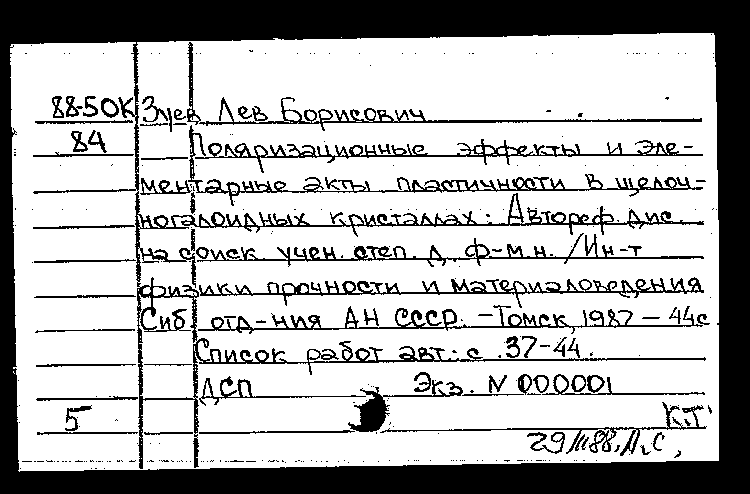 88-50К Зуев Лев Борисович
84 Поляризационные эффекты и эле-
ментарные акты пластичности в щелоч-
ногалоидных кристаллах: Автореф. дис.
на соиск. учен. степ. д. ф-м.н. /Ин-т
физики прочности и материаловедения
Сиб. отд-ния АН СССР. -Томск, 1987 - 44с
Список работ авт.: с. 37-44.
ДСП Экз. N 000001
5 К.Т
29/III88. Л.С,